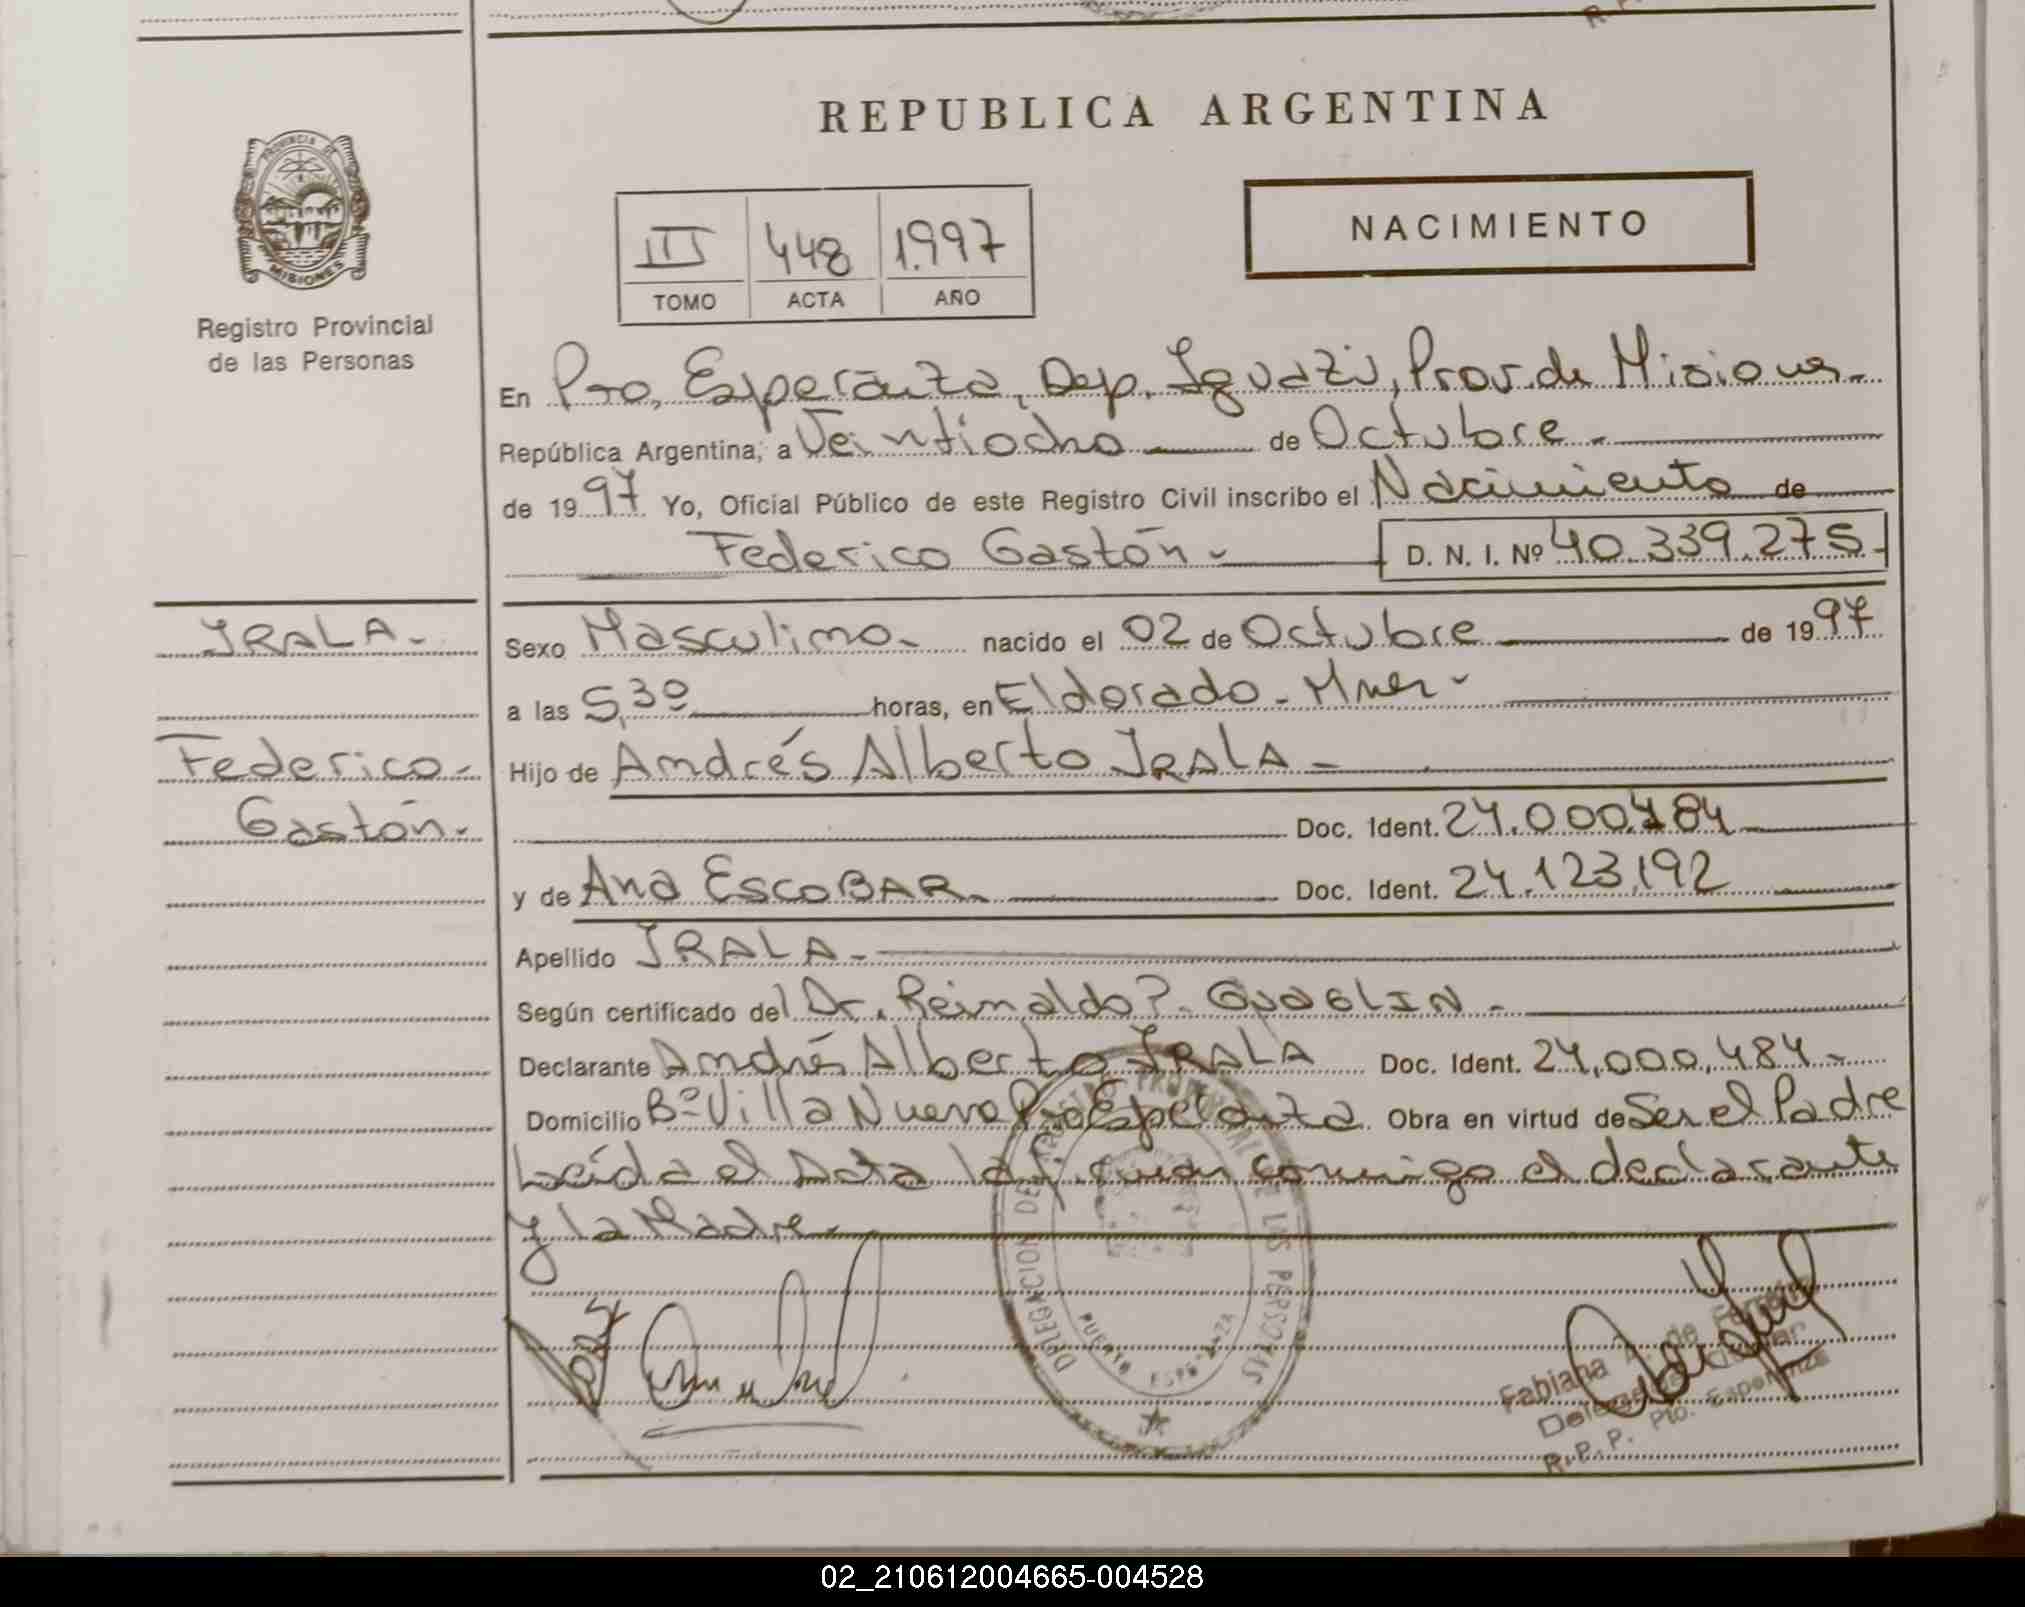 REPUBLICA ARGENTINA
PROVINCIA DE
MISIONES
Registro Provincial
de las Personas
III 448 1.997
TOMO ACTA AÑO
NACIMIENTO
En Pto, Esperanza, Dep. Iguazú, Prov. de Misiones.
República Argentina, a Veintiocho de Octubre.
de 1997 Yo, Oficial Público de este Registro Civil inscribo el Nacimiento de
Federico Gastón. D. N. I. Nº 40.339.275.
IRALA.
Federico
Gastón.
Sexo Masculino. nacido el 02 de Octubre de 1997
a las 5,30 horas, en Eldorado - Mnes.
Hijo de Andrés Alberto IRALA
Doc. Ident. 24.000.484
y de Ana ESCOBAR. Doc. Ident. 24.123.192
Apellido IRALA
Según certificado del Dr. Reinaldo
Declarante Andrés Alberto IRALA Doc. Ident. 24,000,484
Domicilio Bº Villa Nueva Pto Esperanza Obra en virtud de Ser el Padre
Leída el Acta la firman conmigo el declarante
y la Madre
DELEGACION DEL REGISTRO PROVINCIAL DE LAS PERSONAS
PUERTO ESPERANZA
Fabiana de
R.P.P. Pto. Esperanza
02_210612004665-004528